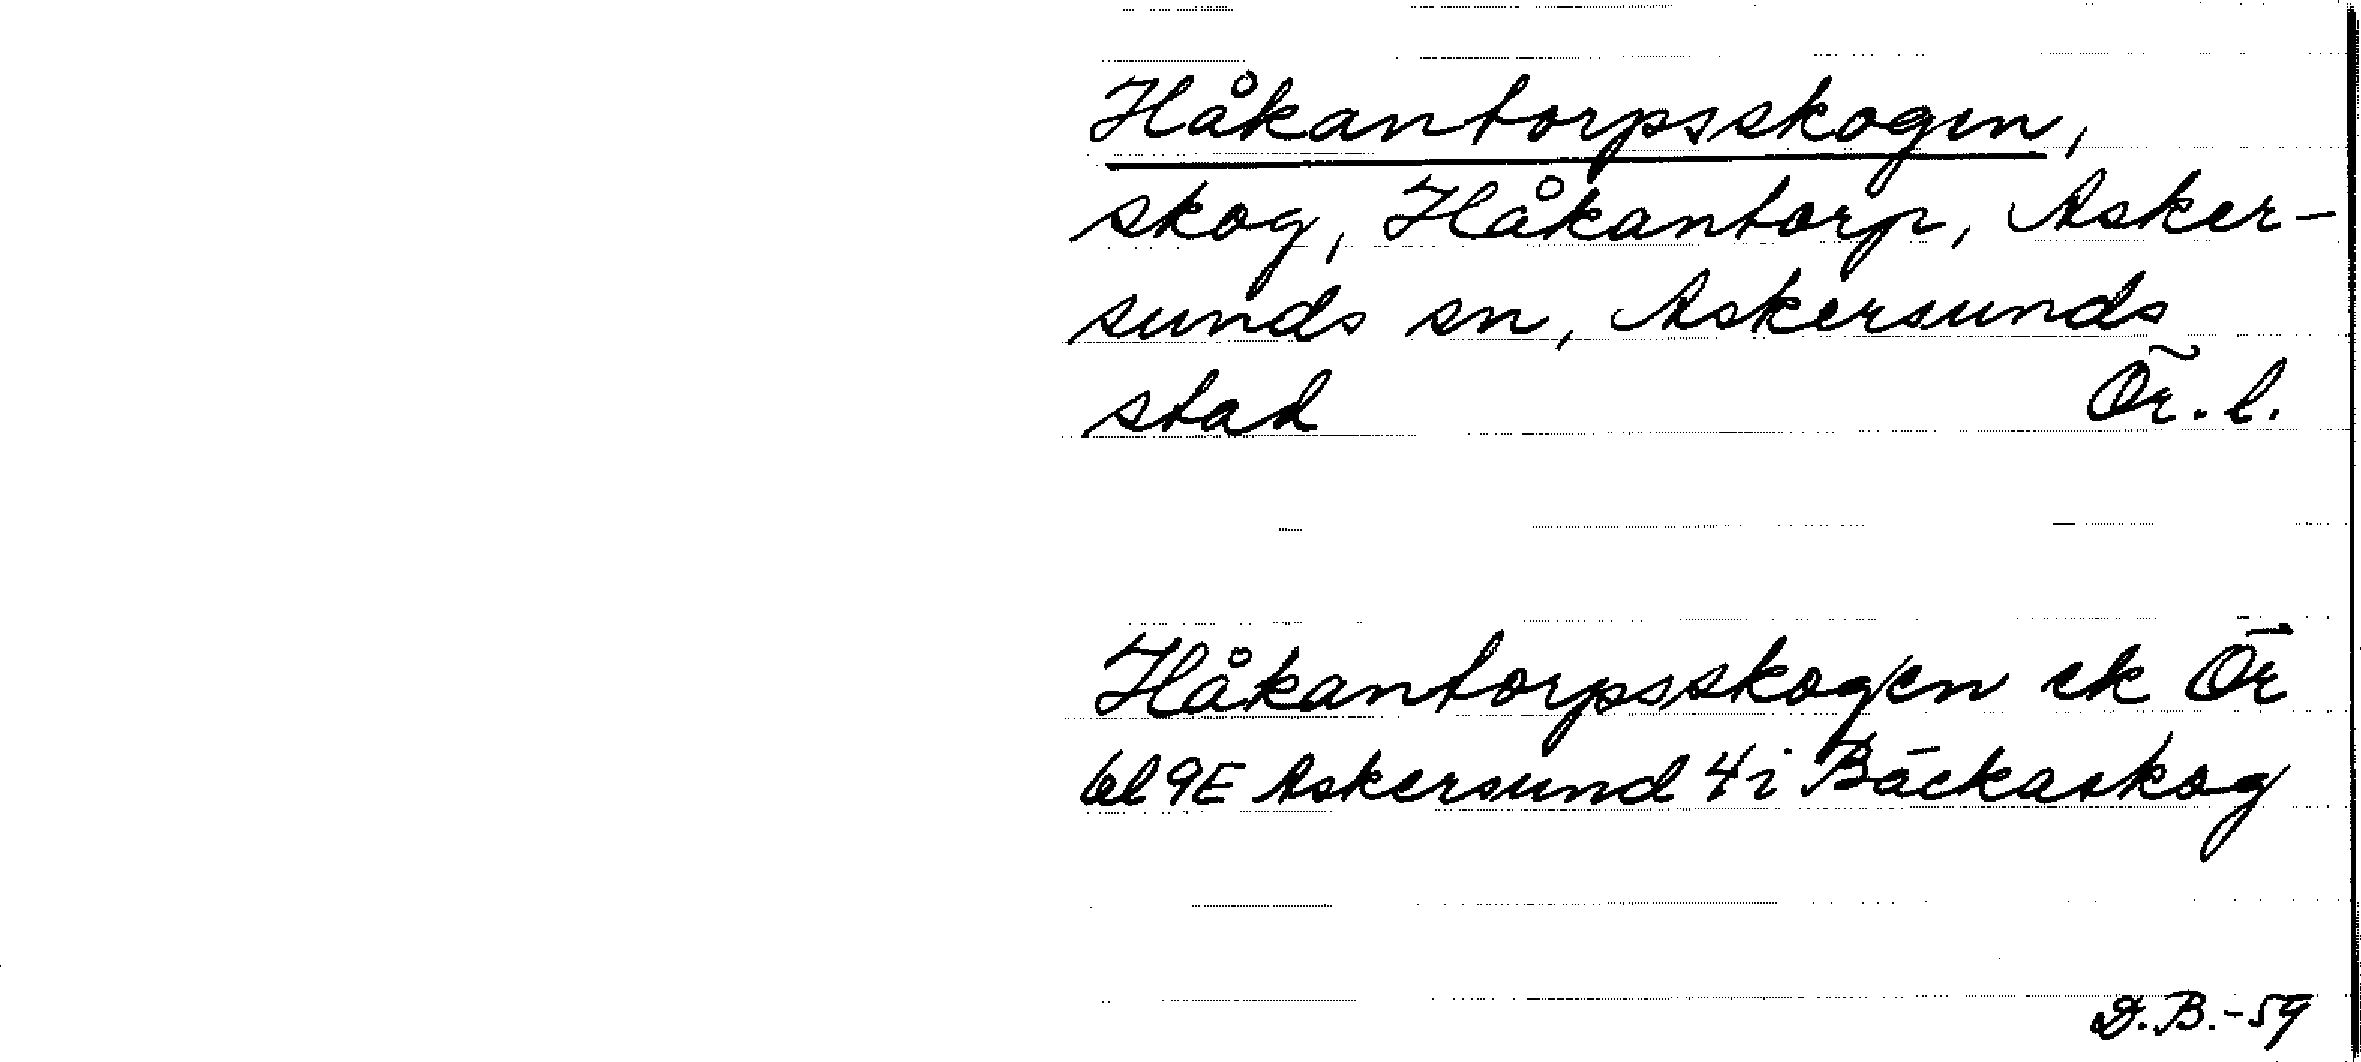 Håkantorpsskogen,
skog, Håkantorp, Asker-
sunds sn, Askersunds
stad Ör. l.
Håkantorpsskogen ek Ör
bl 9E Askersund 4i Bäckaskog
D.B.-59